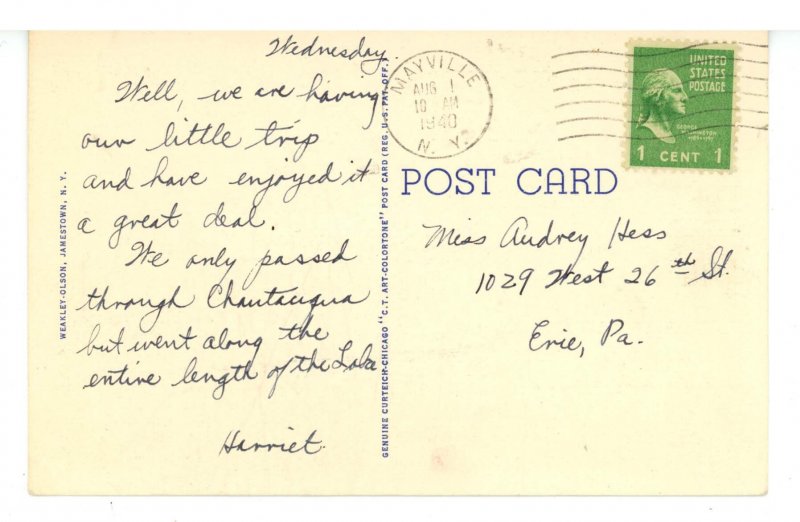 Wednesday.
Well, we are having
our little trip
and have enjoyed it
a great deal.
We only passed
through Chautauqua
but went along the
entire length of the Lake
Harriet
WEAKLEY-OLSON, JAMESTOWN, N. Y.
GENUINE CURTEICH-CHICAGO "C.T. ART-COLORTONE" POST CARD (REG. U.S. PAT. OFF.)
MAYVILLE
AUG 1
10 AM
1940
N. Y.
UNITED
STATES
POSTAGE
GEORGE
WASHINGTON
1 CENT 1
POST CARD
Miss Audrey Hess
1029 West 26th St.
Erie, Pa.